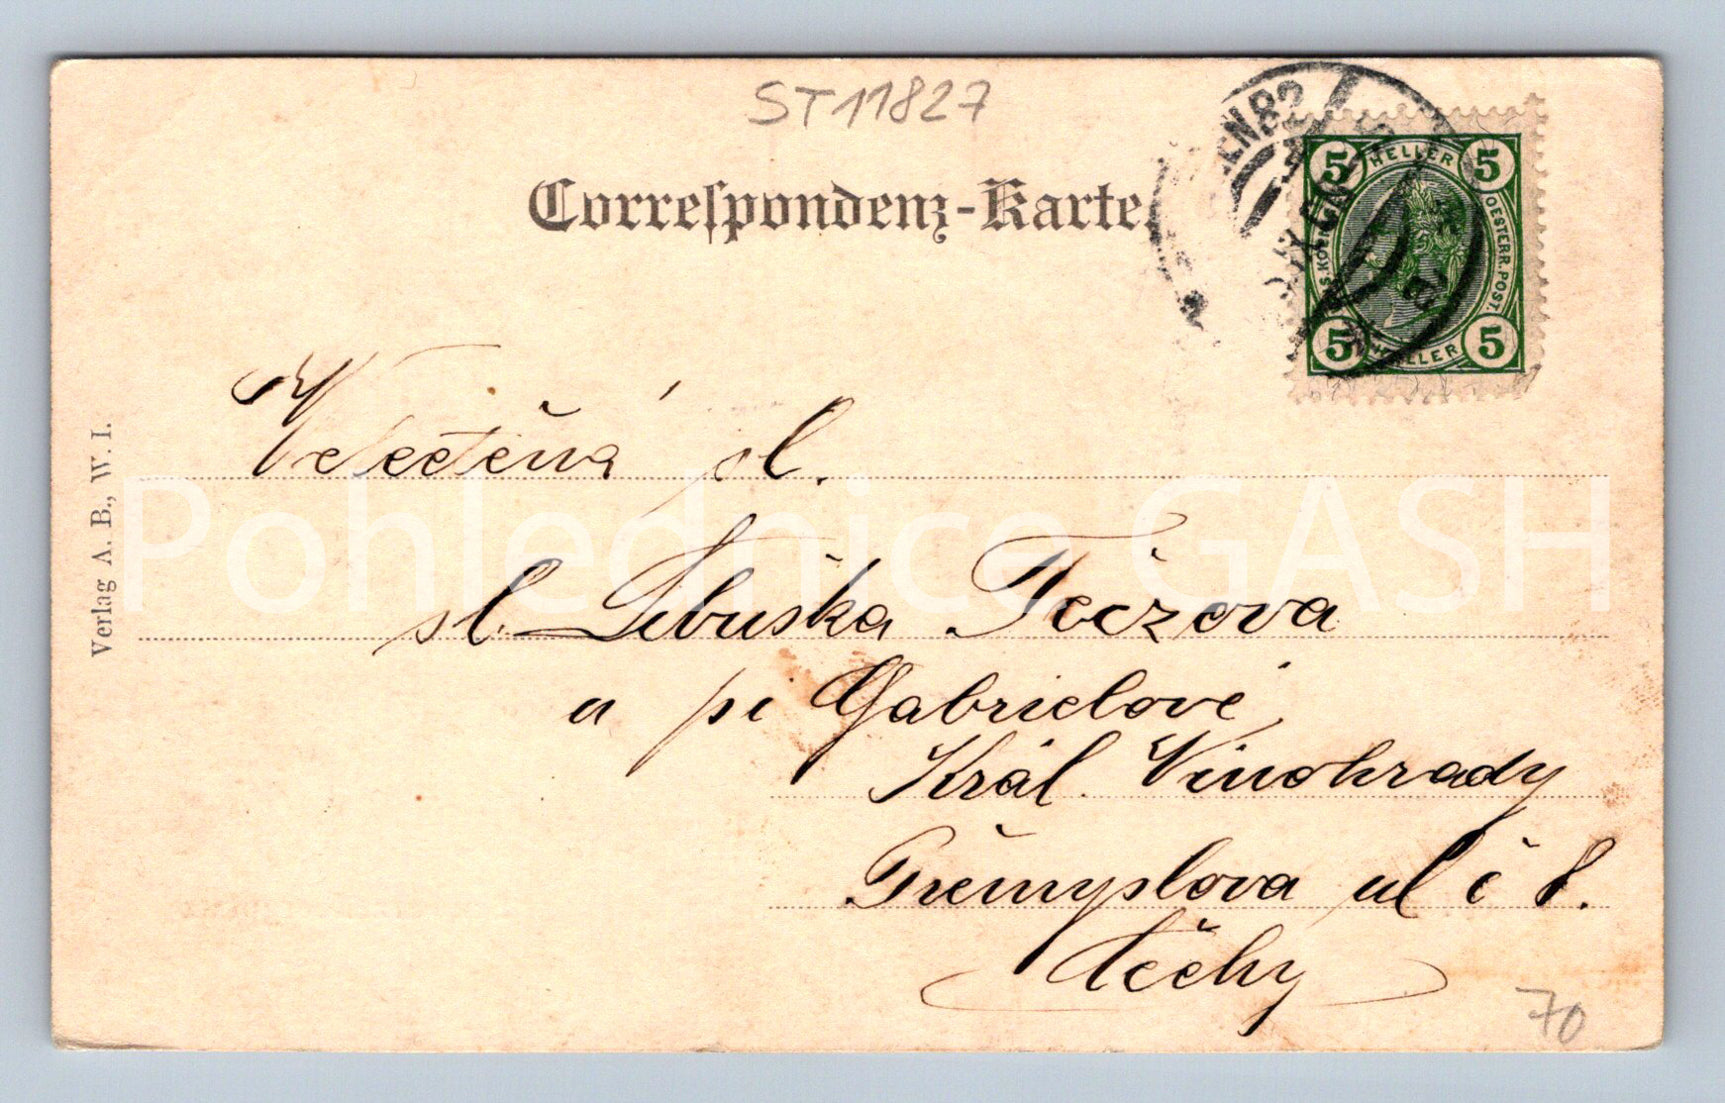 ST11827
Correſpondenz-Karte.
5 HELLER 5
OESTERR. POST.
5 HELLER 5
EN 82
Veletěná sl.
sl. Libuška Fočzova
u pí Gabrielové
Král. Vinohrady
Přemyslova ul č 8.
Čechy
70
Verlag A. B., W. I.
Pohlednice GASH